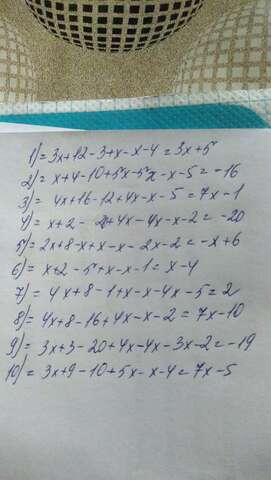 1) = 3x+12-3+x-x-4=3x+5
2) = x+4-10+5x-5x-x-5=-16
3) = 4x+16-12+4x-x-5=7x-1
4) = x+2-20+4x-4x-x-2=-20
5) = 2x+8-x+x-x-2x-2=-x+6
6) = x+2-5+x-x-1=x-4
7) = 4x+8-1+x-x-4x-5=2
8) = 4x+8-16+4x-x-2=7x-10
9) = 3x+3-20+4x-4x-3x-2=-19
10) = 3x+9-10+5x-x-4=7x-5